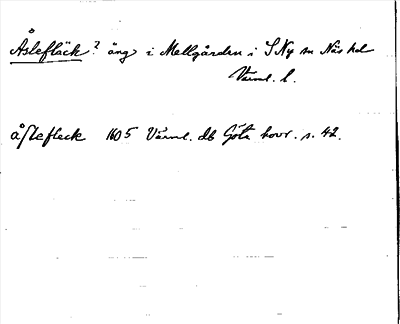 Åslefläck? äng i Mellgården i S Ny sn Näs hd
Värml. l.
åslefleck 1605 Värml. db Göta hovr. s. 42.